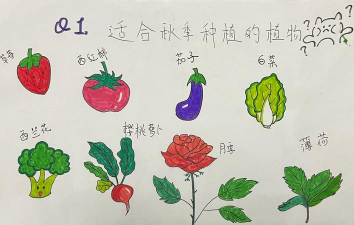 Q1. 适合秋季种植的植物
草莓 西红柿 茄子 白菜
西兰花 樱桃萝卜 月季 薄荷